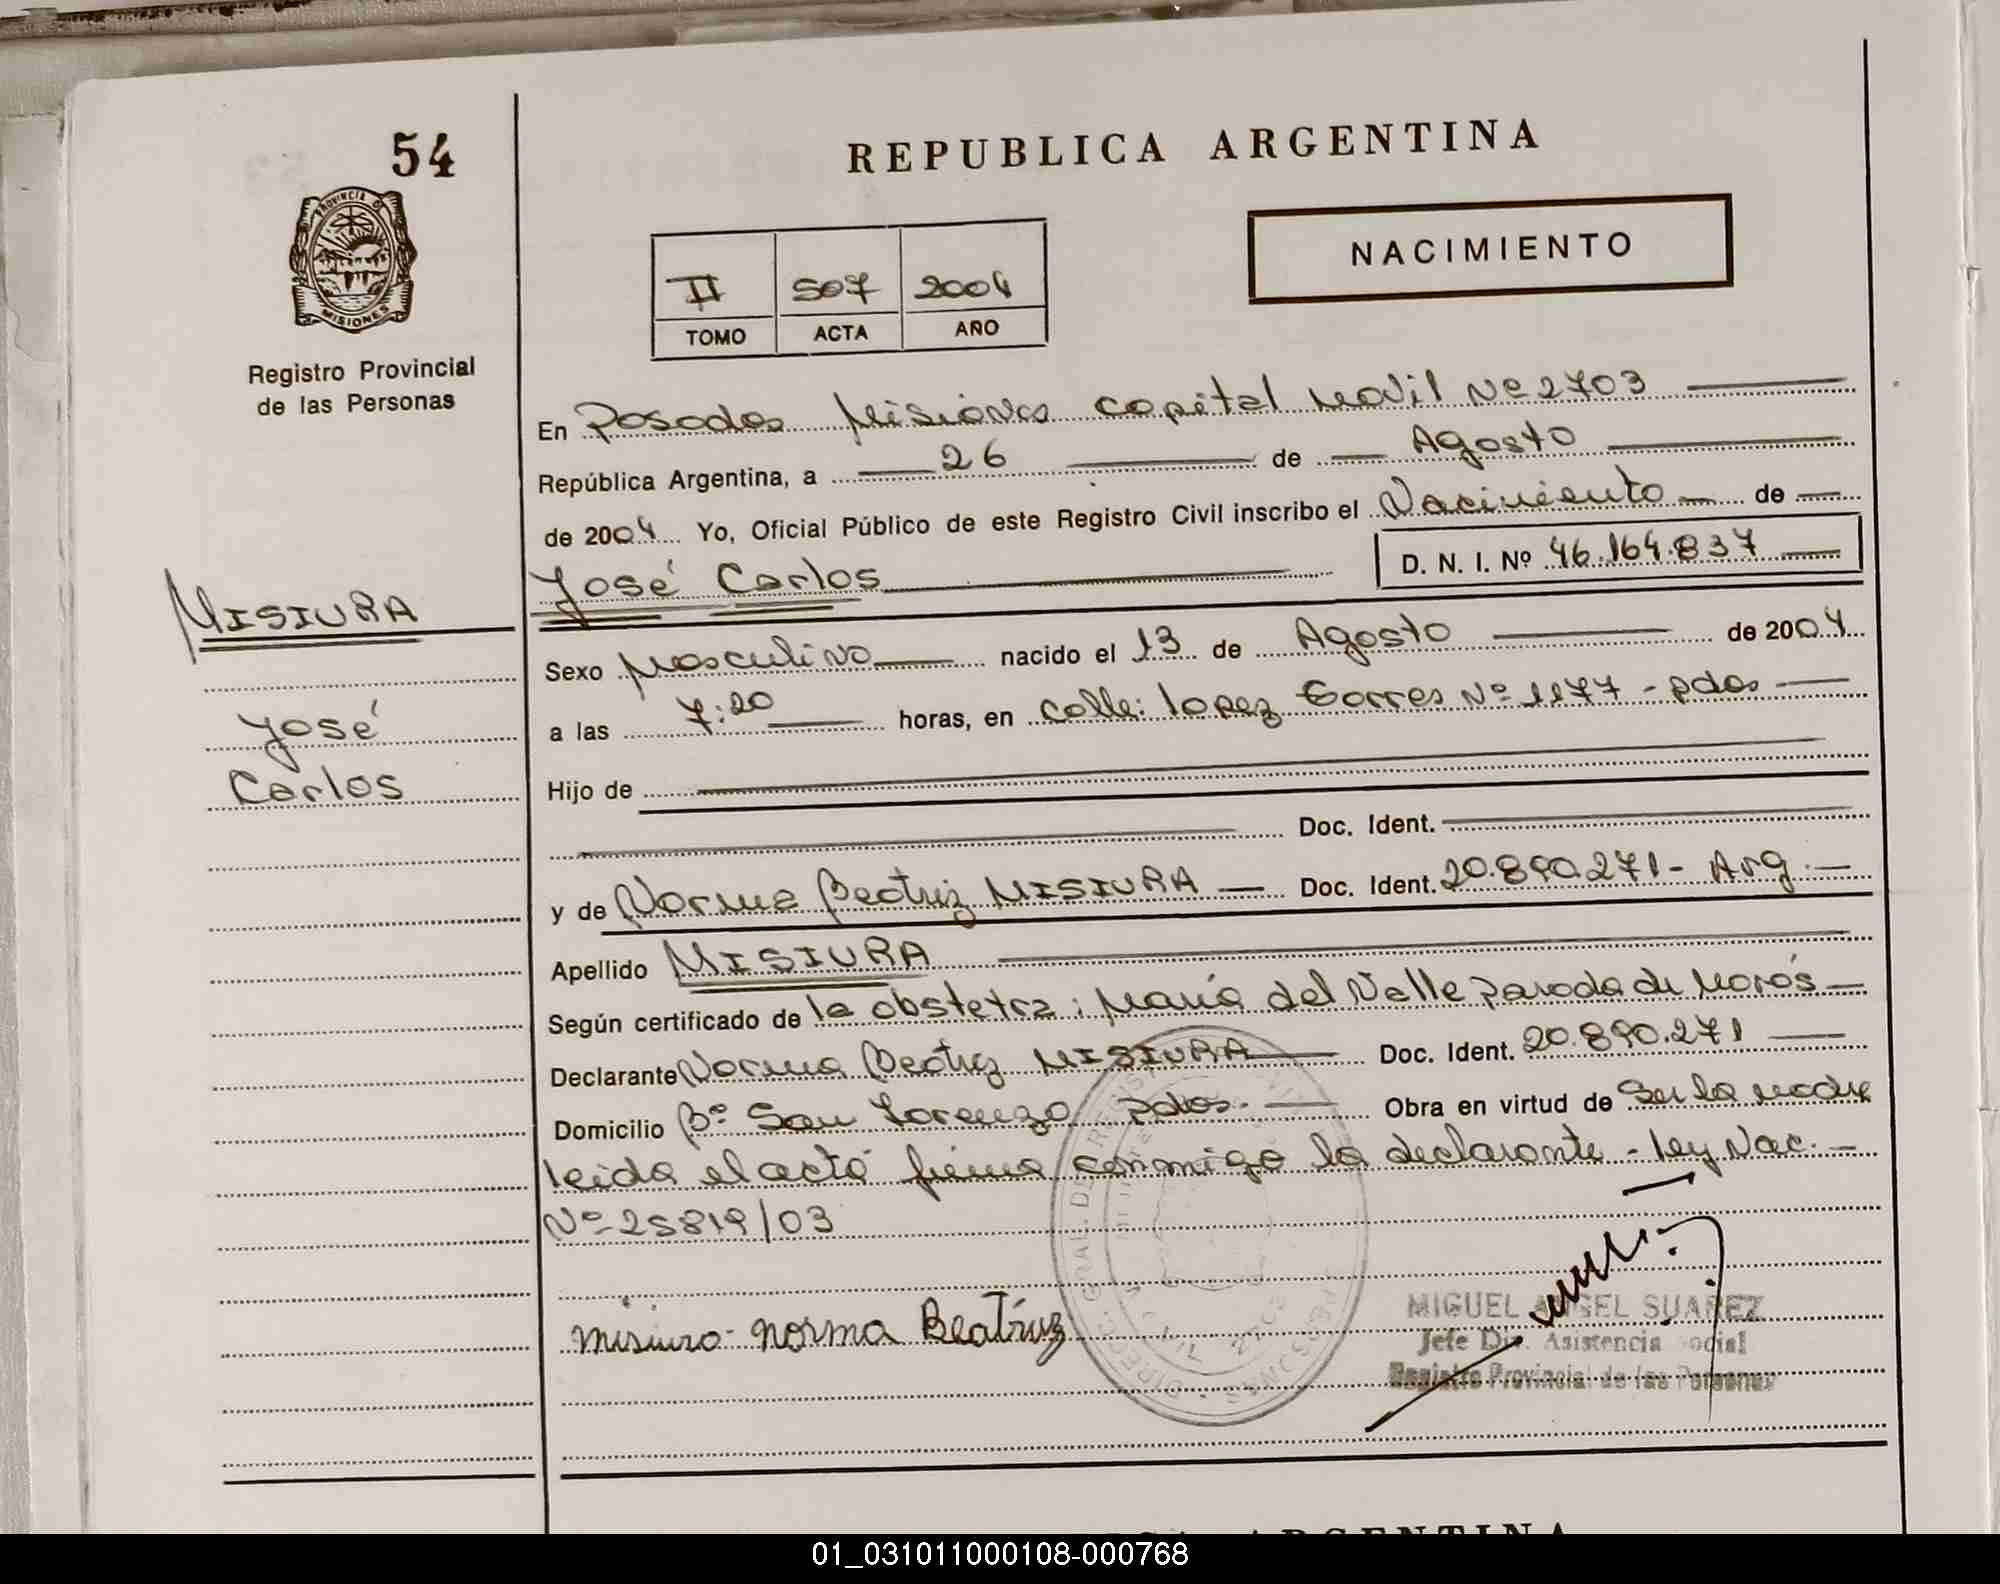 54
REPUBLICA ARGENTINA
PROVINCIA DE
MISIONES
NACIMIENTO
II 507 2004
TOMO ACTA AÑO
Registro Provincial
de las Personas
En Posadas Misiones capital Movil Nº 2703
República Argentina, a 26 de Agosto
de 2004 Yo, Oficial Público de este Registro Civil inscribo el Nacimiento de
José Carlos D. N. I. Nº 46.164.837
MISIURA
José
Carlos
Sexo Masculino nacido el 13 de Agosto de 2004
a las 7:20 horas, en calle: lopez torres Nº 1177 - pdas
Hijo de
Doc. Ident.
y de Norma Beatriz MISIURA Doc. Ident. 20.890.271 - Arg.
Apellido MISIURA
Según certificado de la obstetra: María del Valle Paroda de Morós
Declarante Norma Beatriz MISIURA Doc. Ident. 20.890.271
Domicilio Bº San Lorenzo pdas. Obra en virtud de ser la madre
leida el acta firma conmigo la declarante - ley Nac.
Nº 25819/03
misiura norma Beatriz
MIGUEL ANGEL SUAREZ
Jefe Dir. Asistencia Social
Registro Provincial de las Personas
ARGENTINA
01_031011000108-000768